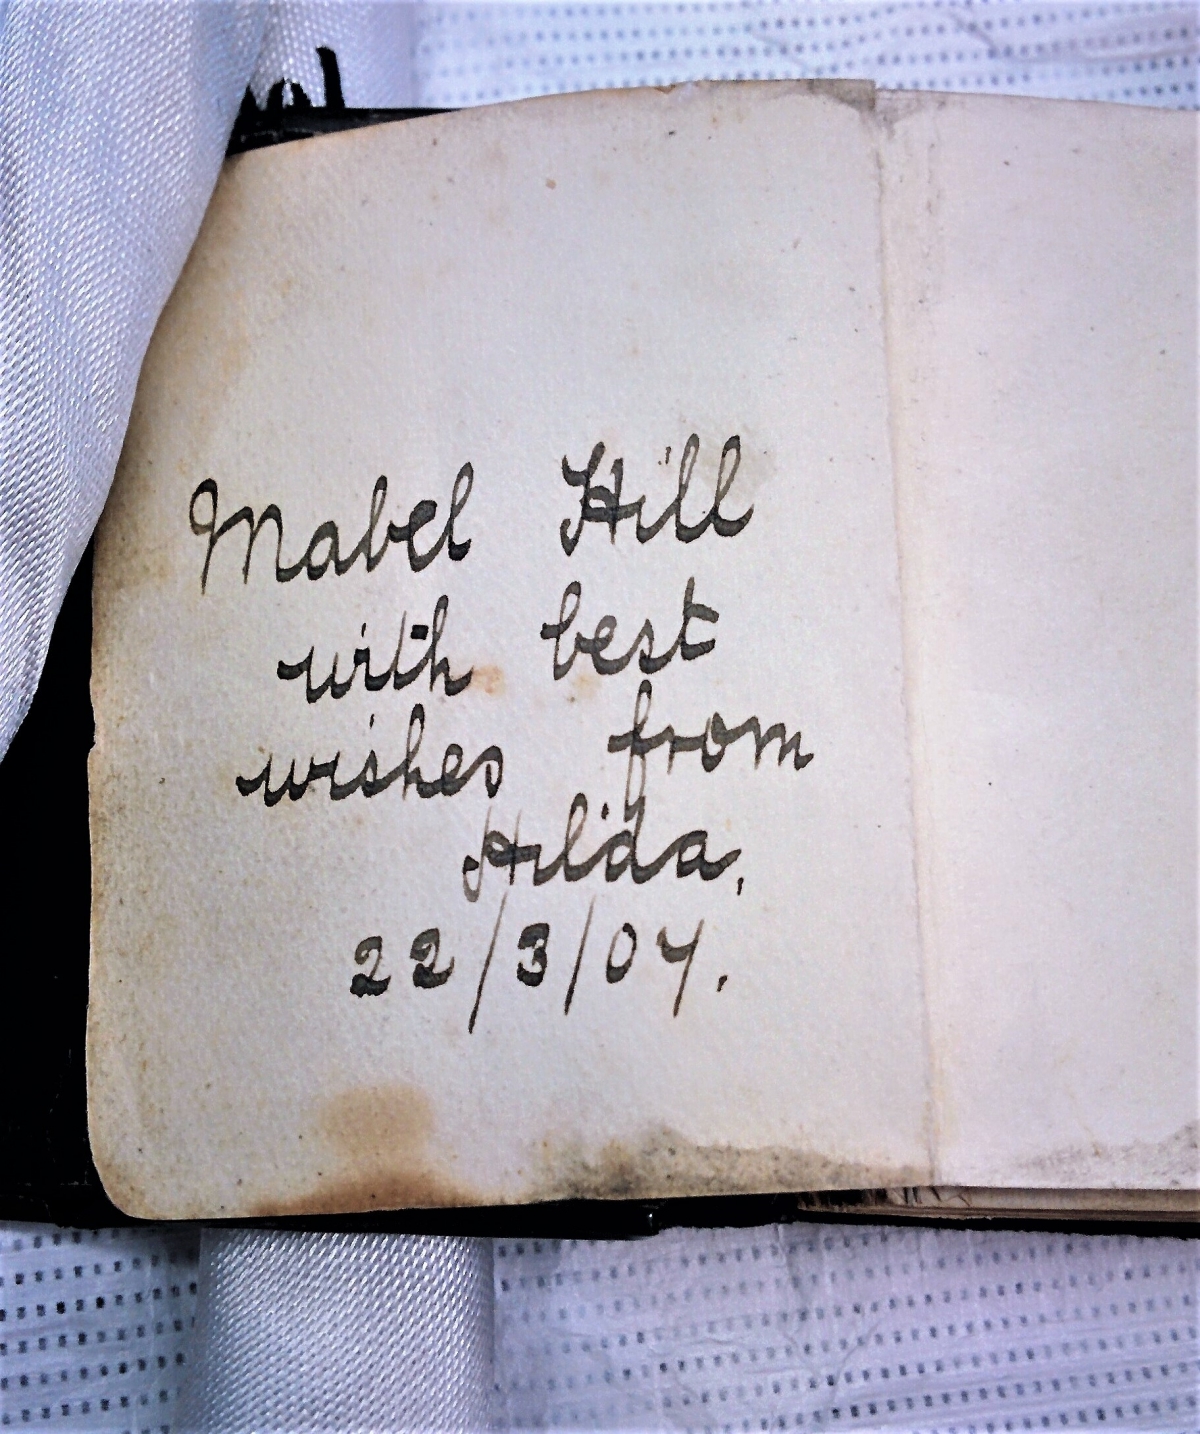 Mabel Hill
with best
wishes from
Hilda,
22/3/04.